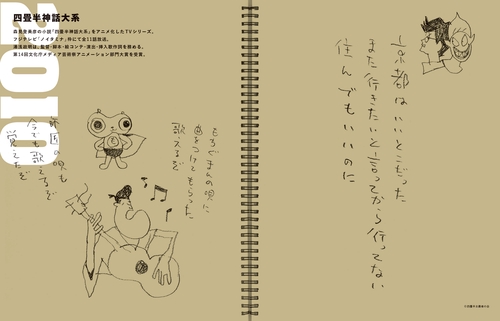 2010
四畳半神話大系
森見登美彦の小説「四畳半神話大系」をアニメ化したTVシリーズ。
フジテレビ「ノイタミナ」枠にて全11話放送。
湯浅政明は、監督・脚本・絵コンテ・演出・挿入歌作詞を務める。
第14回文化庁メディア芸術祭アニメーション部門大賞を受賞。
京都はいいとこだった
また行きたいと言ってから行ってない
住んでもいいのに
もちぐまんの唄に
曲をつけてもらった
歌えるぞ
師匠の唄も
今でも歌えるぞ
覚えたぞ